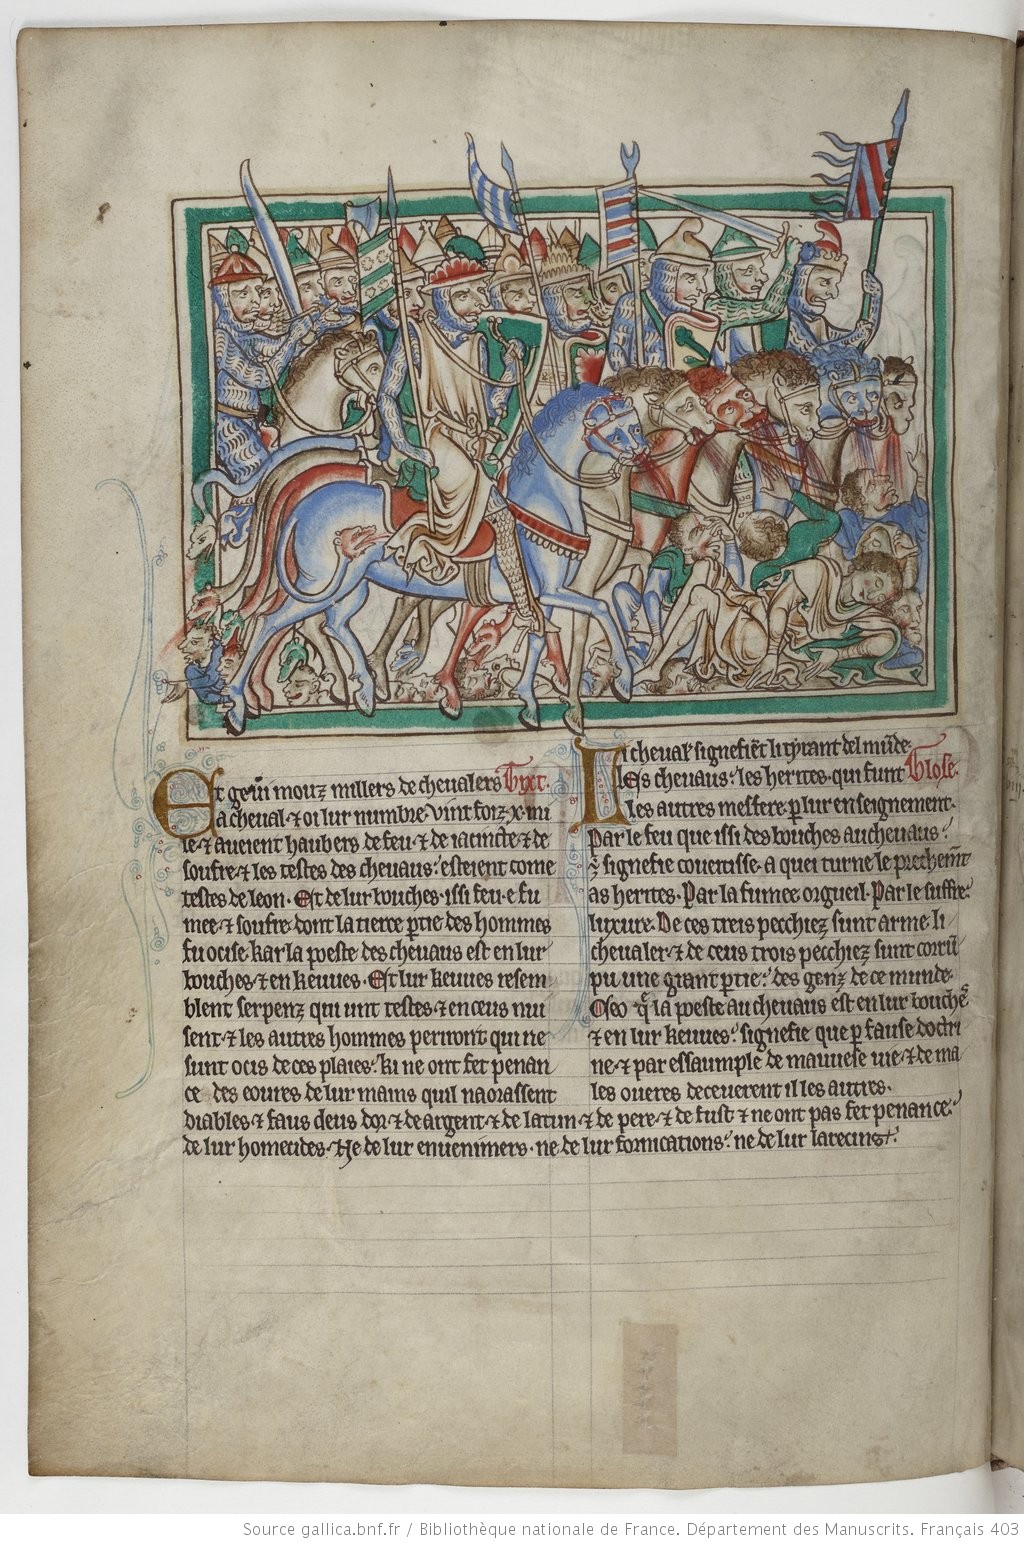 Et geu͂i mouz millers de chevalers Tixt.
a cheval ⁊ oi lur numbre vint foiz x mi
le ⁊ aveient haubers de feu ⁊ de iacincte ⁊ de
soufre ⁊ les testes des chevaus esteient come
testes de leon. Et de lur bouches issi feu e fu
mee ⁊ soufre dont la tierce ꝑtie des hommes
fu ocise kar la poeste des chevaus est en lur
bouches ⁊ en keuues. Et lur keuues resem
blent serpenz qui unt testes ⁊ en ceus nui
sent ⁊ les autres hommes qui ne
sunt ocis de ces plaies ki ne ont fet penan
ce des eoures de lur mains quil naorassent
diables ⁊ faus deus dor ⁊ de argent ⁊ de latun ⁊ de pere ⁊ de fust ⁊ ne ont pas fet penance
de lur homecides. Ne de lur envenimers. ne de lur fornications ne de lur larecins.
Li chevaler signefiēt li tyrant del mūde.
les chevaus les herites. qui funt Glose.
les autres messere ꝑ lur enseignement.
Par le feu que issi des bouches au chevaus
signefie coveitisse a quei turne le
as herites. Par la fumee orgueil. Par le suffre
luxure. De ces treis pecchiez sunt arme li
chevaler ⁊ de ceus trois pecchiez sunt corrū
pu une grant ꝑtie des genz de ce munde.
Ceo q̄ la poeste au chevaus est en lur bouche
⁊ en lur keuues signefie que ꝑ fause doctri
ne ⁊ par essaumple de mauueise vie ⁊ de ma
les overes deceuerent il les autres.
Source gallica.bnf.fr / Bibliothèque nationale de France. Département des Manuscrits. Français 403